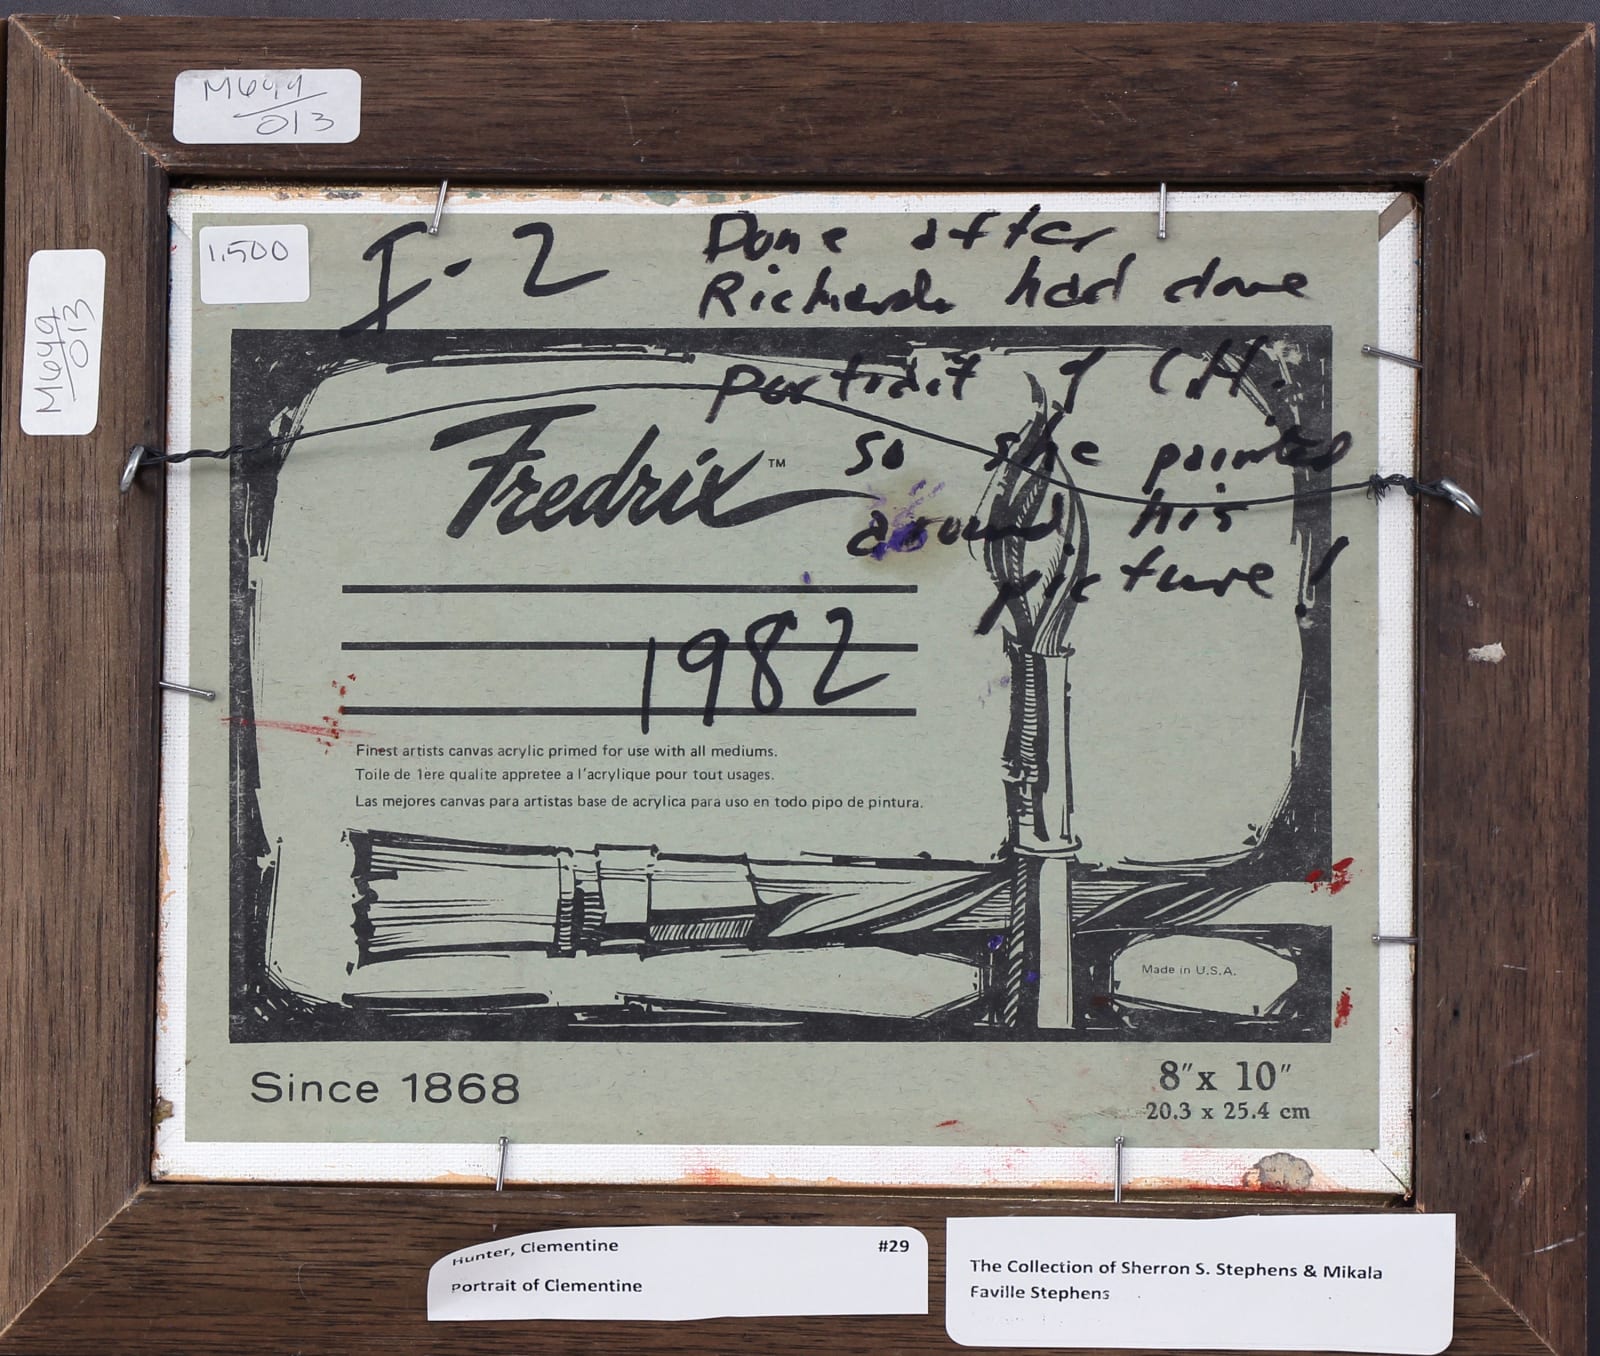 M649
013
M649
013
1,500
I-2
Done after
Richards had done
portrait of C.H.
so she painted
around his
picture!
Fredrix™
1982
Finest artists canvas acrylic primed for use with all mediums.
Toile de 1ère qualite appretee a l'acrylique pour tout usages.
Las mejores canvas para artistas base de acrylica para uso en todo pipo de pintura.
Made in U.S.A.
Since 1868
8" x 10"
20.3 x 25.4 cm
Hunter, Clementine #29
Portrait of Clementine
The Collection of Sherron S. Stephens & Mikala
Faville Stephens